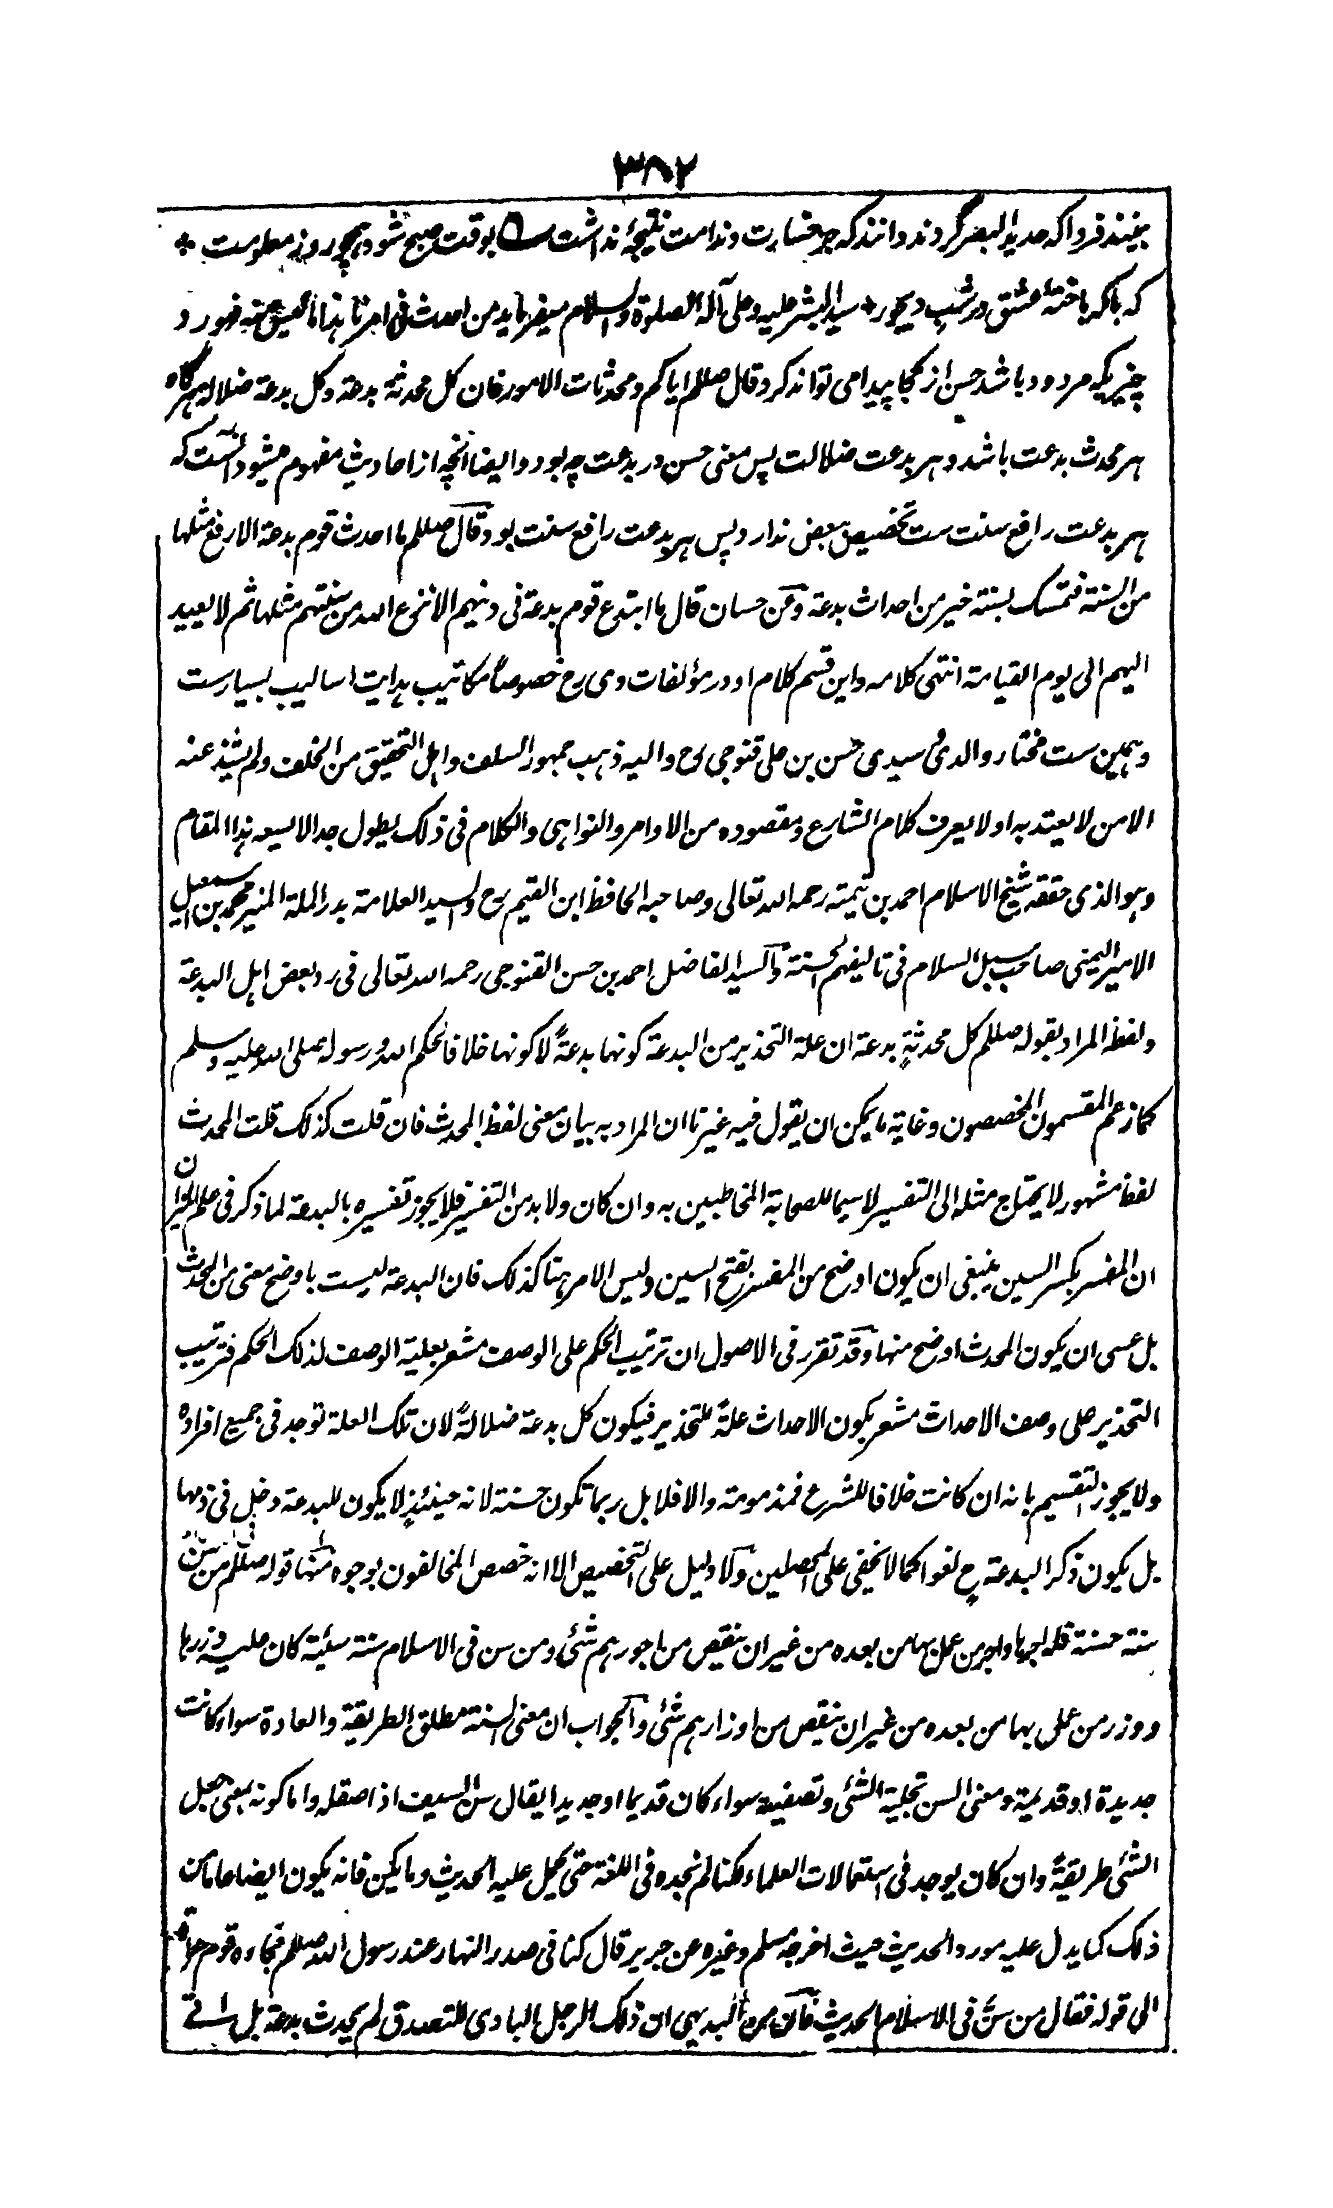 ۳۸۲
بینند فردا که حدید البصر گردند دانند که جز خسارت و ندامت نتیجهٔ نداشت ؎ بوقت صبح شود همچو روز معلومت *
که باکه باختهٔ عشق در شب دیجور * سید البشر علیه و علی آله الصلوة والسلام میفرماید من احدث فی امرنا هذا ما لیس منه فهو رد
چیزیکه مردود باشد حسن از کجا پیدا می تواند کرد و قال صللم ایاکم و محدثات الامور فان کل محدثة بدعة و کل بدعة ضلالة هرگاه
هر محدث بدعت باشد و هر بدعت ضلالت پس معنی حسن در بدعت چه بود و ایضا انچه از احادیث مفهوم میشود آنست که
هر بدعت رافع سنت ست تخصیص ببعض ندارد پس هر بدعت رافع سنت بود و قال صللم ما احدث قوم بدعة الا رفع مثلها
من السنة فتمسک بسنة خیر من احداث بدعة و عن حسان قال ما ابتدع قوم بدعة فی دینهم الا نزع الله من سنتهم مثلها ثم لا یعید
الیهم الی یوم القیامة انتهی کلامه و این قسم کلام او در مؤلفات وی رح خصوصاً مکاتیب هدایت اسالیب بسیارست
و همین ست مختار والدی سیدی حسن بن علی قنوجی رح و الیه ذهب جمهور السلف و اهل التحقیق من الخلف و لم یشذ عنه
الا من لا یعتد به او لا یعرف کلام الشارع و مقصوده من الاوامر و النواهی و الکلام فی ذلک یطول جدا لا یسعه هذا المقام
و هو الذی حققه شیخ الاسلام احمد بن تیمیة رحمه الله تعالی و صاحبه الحافظ ابن القیم رح و السید العلامة بدر الملة المنیر محمد بن اسمعیل
الامیر الیمنی صاحب سبل السلام فی تالیفهم الحسنة و السید الفاضل احمد بن حسن القنوجی رحمه الله تعالی فی رد بعض اهل البدعة
و لفظه المراد بقوله صللم کل محدثةٍ بدعة ان علة التحذیر من البدعة کونها بدعةً لا کونها خلافا لحکم الله و رسوله صلی الله علیه و سلم
کما زعم المقسمون المخصصون و غایة ما یمکن ان یقول فیه غیرنا ان المراد به بیان معنی لفظ المحدث فان قلت کذلک قلت المحدث
لفظ مشهور لا یحتاج مثله الی التفسیر لا سیما للصحابة المخاطبین به و ان کان و لا بد من التفسیر فلا یجوز تفسیره بالبدعة لما ذکر فی علم المیزان
ان المفسر بکسر السین ینبغی ان یکون اوضح من المفسر بفتح السین و لیس الامر هنا کذلک فان البدعة لیست باوضح معنی من المحدث
بل عسی ان یکون المحدث اوضح منها و قد تقرر فی الاصول ان ترتیب الحکم علی الوصف مشعر بعلیة الوصف لذلک الحکم فترتیب
التحذیر علی وصف الاحداث مشعر بکون الاحداث علةً للتحذیر فیکون کل بدعة ضلالةً لان تلک العلة توجد فی جمیع افراده
و لا یجوز التقسیم بانه ان کانت خلافا للشرع فمذمومة و الا فلا بل ربما تکون حسنة لانه حینئذٍ لا یکون للبدعة دخل فی ذمها
بل یکون ذکر البدعة ح لغوا کما لا یخفی علی المحصلین و لا دلیل علی التخصیص الا انه خصص المخالفون بوجوه منها قوله صللم من سن فی الاسلام
سنة حسنة فله اجرها و اجر من عمل بها من بعده من غیر ان ینقص من اجورهم شیٔ و من سن فی الاسلام سنة سیئة کان علیه وزرها
و وزر من عمل بها من بعده من غیر ان ینقص من اوزارهم شیٔ و الجواب ان معنی السنة مطلق الطریقة و العادة سواء کانت
جدیدة او قدیمة و معنی السن تجلیة الشیٔ و تصفیته سواء کان قدیما او جدیدا یقال سن السیف اذا صقله و اما کونه بمعنی جعل
الشیٔ طریقةً و ان کان یوجد فی استعمالات العلماء لکنا لم نجده فی اللغة حتی یحمل علیه الحدیث و ما یکن فانه یکون ایضا عاما من
ذلک کما یدل علیه مورد الحدیث حیث اخرجه مسلم و غیره عن جریر قال کنا فی صدر النهار عند رسول الله صللم فجاءه قوم عراة
الی قوله فقال من سنَّ فی الاسلام الحدیث فان من البدیهی ان ذلک الرجل البادی للتصدق لم یحدث بدعة بل اتی